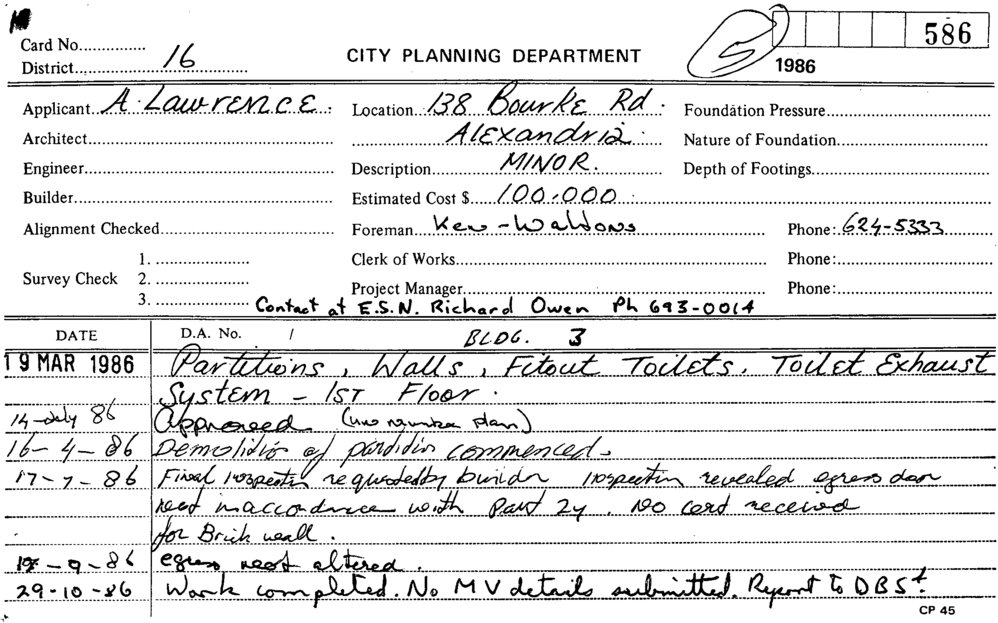 Card No...............
District... 16
CITY PLANNING DEPARTMENT
5
586
1986
Applicant A. Lawrence
Location 138 Bourke Rd.
Foundation Pressure
Architect
Alexandria.
Nature of Foundation
Engineer
Description MINOR.
Depth of Footings
Builder
Estimated Cost $ 100,000
Alignment Checked
Foreman Kew - Waldons
Phone: 624-5333
Clerk of Works
Phone:
Survey Check
1.
2.
3.
Project Manager
Phone:
Contact at E.S.N. Richard Owen Ph 693-0014
DATE
D.A. No. /
BLDG. 3
19 MAR 1986 Partitions, Walls, Fitout Toilets, Toilet Exhaust
System - 1ST Floor.
14-July 86 Approved
16-4-86 Demolition of partition commenced.
17-7-86 Final inspection requested by builder inspection revealed egress door
not in accordance with Part 24. No cert received
for Brick wall.
-9-86 egress not altered.
29-10-86 Work completed. No MV details submitted. Report to DBS
CP 45